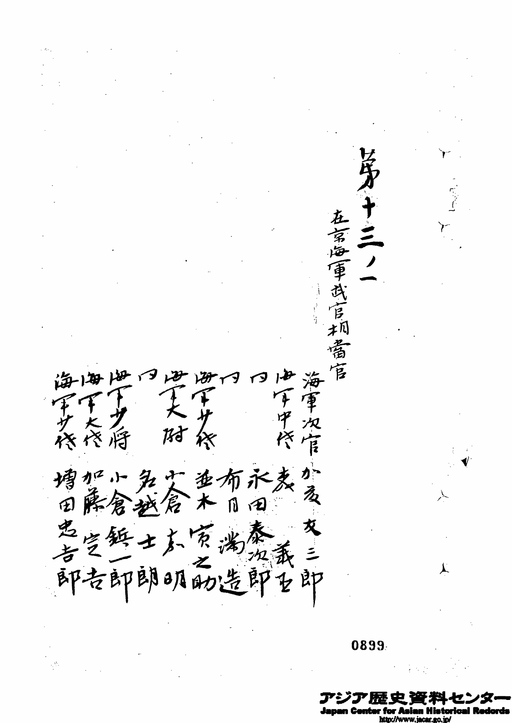 第十三ノ一
在京海軍武官相當官
海軍次官 加友三郎
海軍中佐 義
同 永田泰次郎
同 布目満造
海軍少佐 並木寅之助
海軍大尉 小倉嘉明
同 名越士朗
海軍少将 小倉鋲一郎
海軍大佐 加藤定吉
海軍少佐 増田忠吉郎
0899
アジア歴史資料センター
Japan Center for Asian Historical Records
http://www.jacar.go.jp/